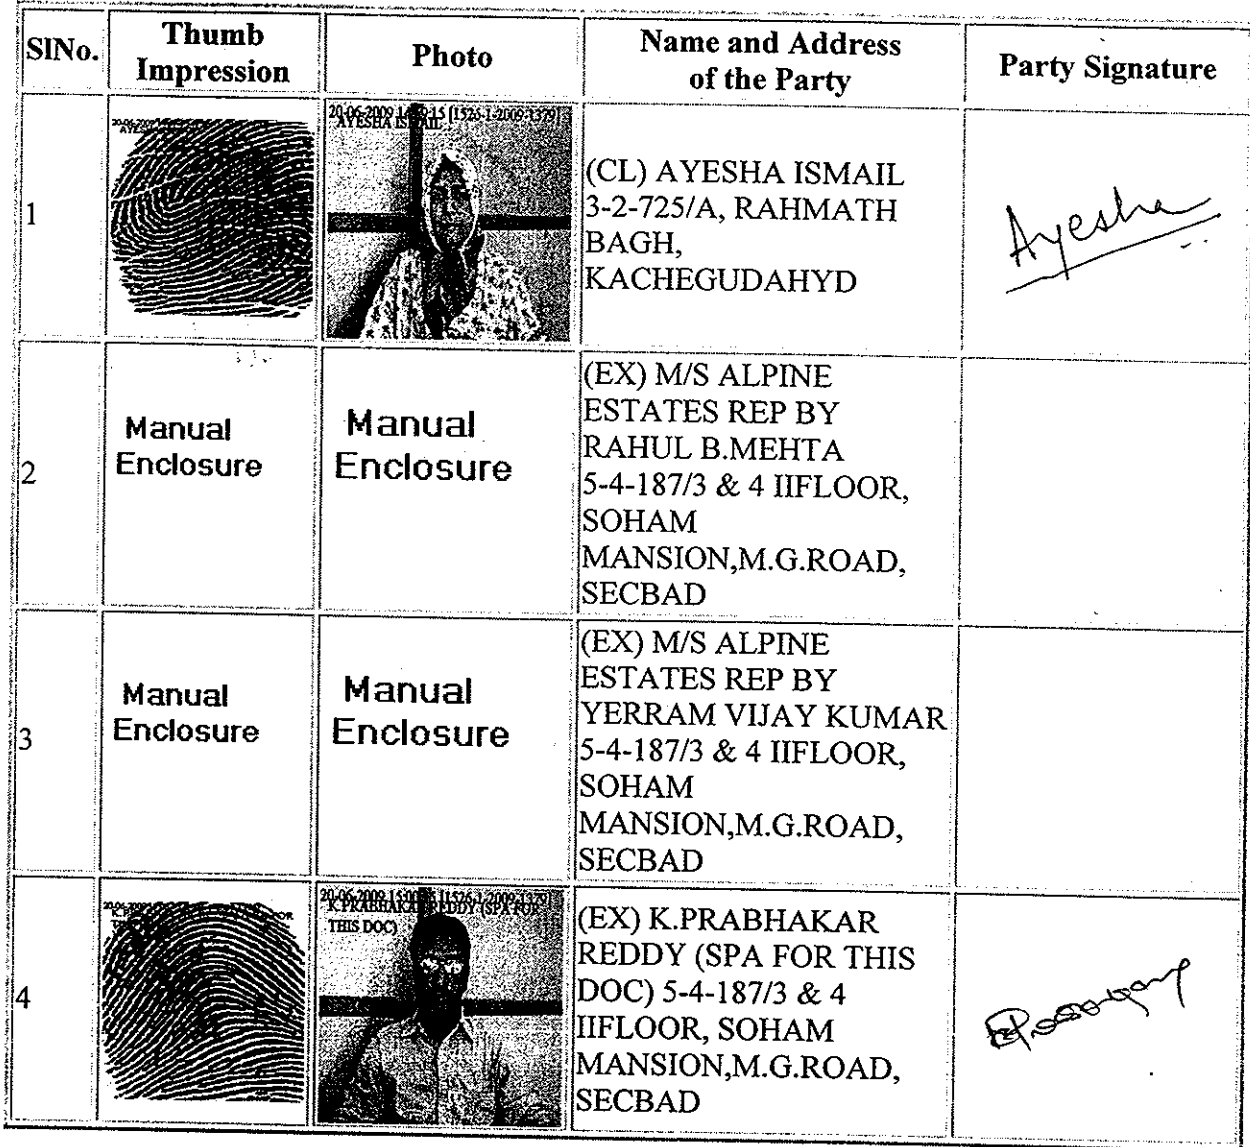 SlNo. Thumb Impression Photo Name and Address of the Party Party Signature
1
20-06-2009 [1526-1-2009-1379]
AYESHA ISMAIL
(CL) AYESHA ISMAIL
3-2-725/A, RAHMATH
BAGH,
KACHEGUDAHYD
Ayesha
2
Manual
Enclosure
Manual
Enclosure
(EX) M/S ALPINE
ESTATES REP BY
RAHUL B.MEHTA
5-4-187/3 & 4 IIFLOOR,
SOHAM
MANSION,M.G.ROAD,
SECBAD
3
Manual
Enclosure
Manual
Enclosure
(EX) M/S ALPINE
ESTATES REP BY
YERRAM VIJAY KUMAR
5-4-187/3 & 4 IIFLOOR,
SOHAM
MANSION,M.G.ROAD,
SECBAD
4
20-06-2009 [1526-1-2009-1379]
K.PRABHAKAR REDDY (SPA FOR
THIS DOC)
(EX) K.PRABHAKAR
REDDY (SPA FOR THIS
DOC) 5-4-187/3 & 4
IIFLOOR, SOHAM
MANSION,M.G.ROAD,
SECBAD